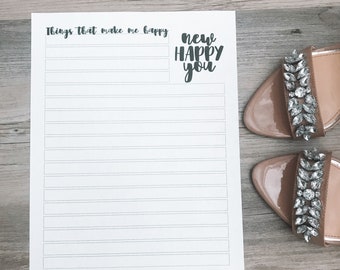 Things that make me happy
new
HAPPY
you